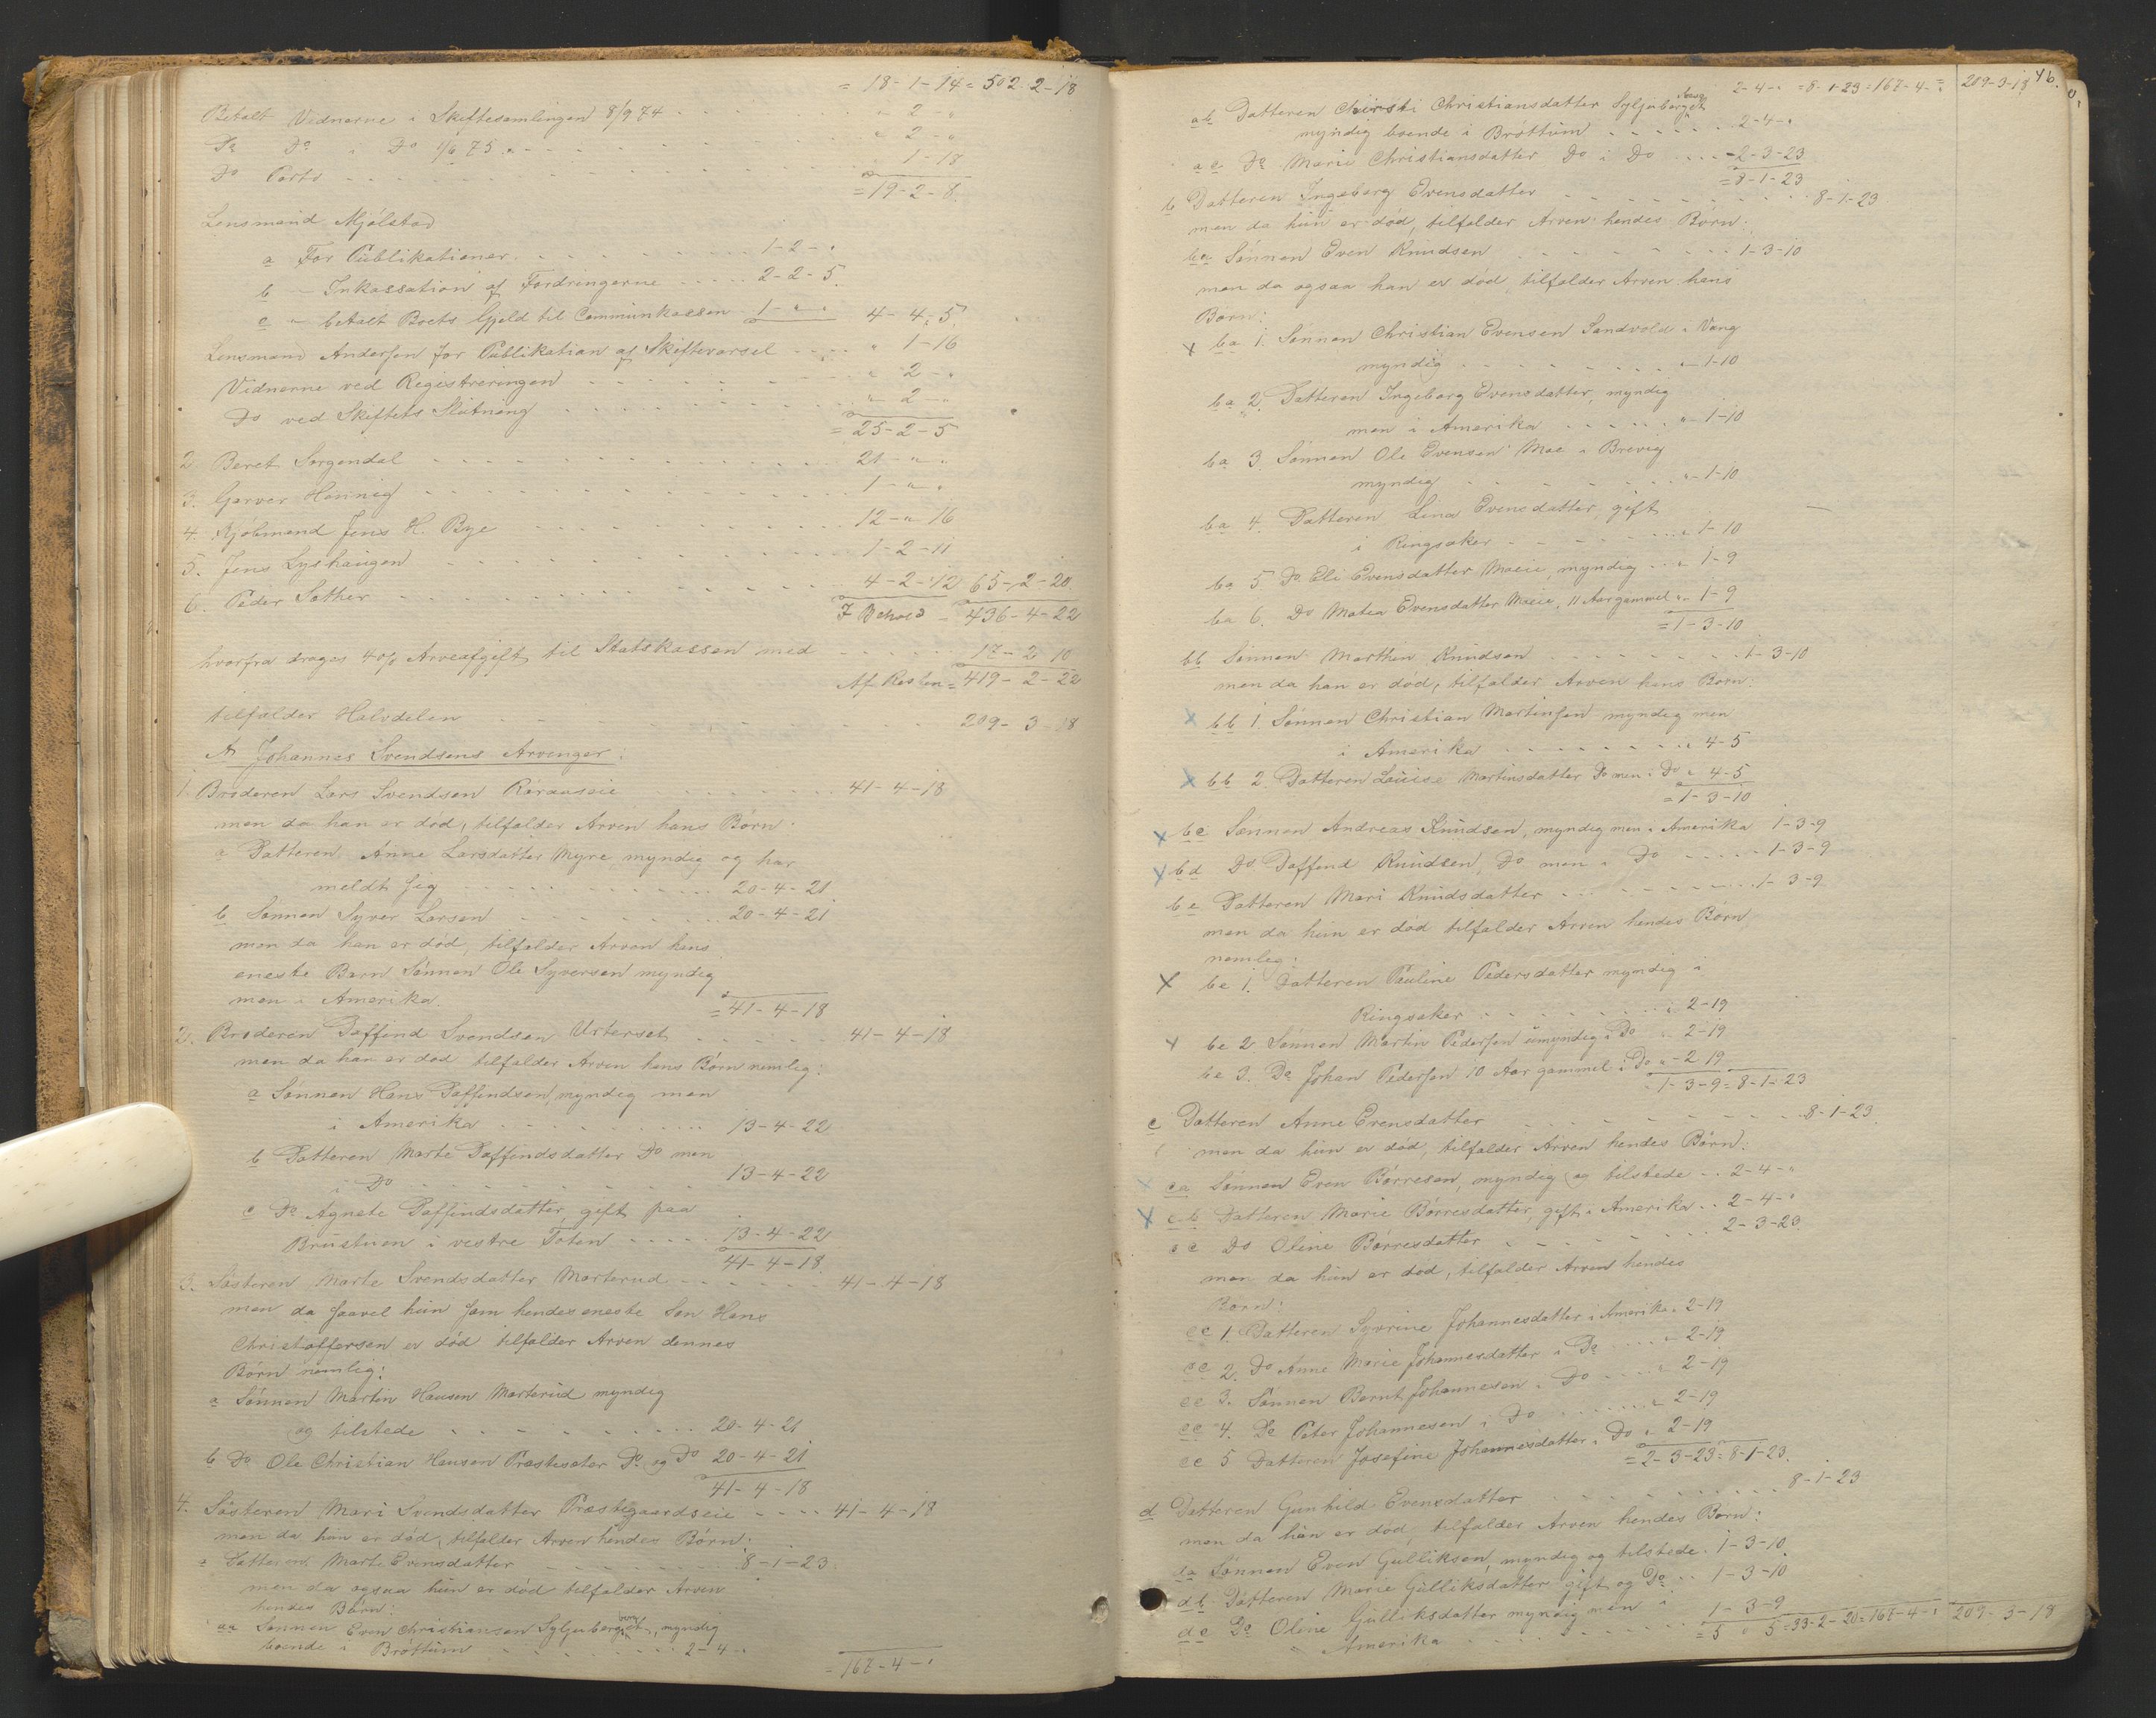 = 18-1-14 = 502-2-18
Betalt Vidnerne i Skiftesamlingen 8/9 74 . . " 2 - "
Do Do i Do 1/6 75 . . " 2 - "
Do Porto . . " 1-18
= 19-2-8.
Lensmand Mjølstad
a For Publikationer . . 1-2-"
b - Inkassation af Fordringerne . . 2-2-5.
c " betalt Boets Gjeld til Communkassen 1-"-" 4-4-5.
Lensmand Andersen for Publikation af Skiftevarsel . . " 1-16
Vidnerne ved Registreringen . . " 2 - "
Do ved Skiftets Slutning . . " 2 - "
= 25-2-5
2. Beret Sorgendal . . 21-"-"
3. Garver Hennig . . 1-"-"
4. Kjøbmand Jens H. Bye . . 12-"-16
5. Jens Lyshaugen . . 1-2-11
6. Peder Sæther . . 4-2-12 65-2-20
I Behold = 436-4-22
hvorfra drages 4 o/o Arveafgift til Statskassen med . . 17-2-10
Af Resten = 419-2-22
tilfalder Halvdelen . . 209-3-18
A Johannes Svendsens Arvinger:
1. Broderen Lars Svendsen Røraaseie . . 41-4-18
men da han er død, tilfalder Arven hans Børn:
a Datteren Anne Larsdatter Myre myndig og har
meldt sig . . 20-4-21
b Sønnen Syver Larsen . . 20-4-21
men da han er død, tilfalder Arven hans
eneste Barn Sønnen Ole Syversen myndig
men i Amerika = 41-4-18
2. Broderen Daffind Svendsen Urterset . . 41-4-18
men da han er død tilfalder Arven hans Børn nemlig:
a Sønnen Hans Daffindsen, myndig men
i Amerika . . 13-4-22
b Datteren Marte Daffindsdatter Do men
i Do . . 13-4-22
c Do Agnete Daffindsdatter, gift paa
Brustuen i vestre Toten . . 13-4-22
41-4-18
3. Søsteren Marte Svendsdatter Marterud . . 41-4-18
men da saavel hun som hendes eneste Søn Hans
Christoffersen er død tilfalder Arven dennes
Børn nemlig:
a Sønnen Martin Hansen Marterud myndig
og tilstede . . 20-4-21
b Do Ole Christian Hansen Præstesæter Do og Do 20-4-21
41-4-18
4. Søsteren Mari Svendsdatter Præstegaardseie . . 41-4-18
men da hun er død, tilfalder Arven hendes Børn:
a Datteren Marte Evensdatter . . 8-1-23
men da ogsaa hun er død tilfalder Arven
hendes Børn:
aa Sønnen Even Christiansen Syljuberget, myndig
boende i Brøttum . . 2-4-"
= 167-4-"
46.
2-4-" = 8-1-23 = 167-4-" = 209-3-18
ab Datteren Chirsti Christiansdatter Syljuberget
myndig boende i Brøttum . . 2-4-"
ac Do Marie Christiansdatter Do i Do . . 2-3-23
= 8-1-23
b Datteren Ingeborg Evensdatter . . 8-1-23
men da hun er død, tilfalder Arven hendes Børn:
ba Sønnen Even Knudsen . . 1-3-10
men da ogsaa han er død, tilfalder Arven hans
Børn:
x ba 1. Sønnen Christian Evensen Sandvold i Vang
myndig . . "-1-10
ba 2. Datteren Ingeborg Evensdatter, myndig
men i Amerika . . "-1-10
ba 3. Sønnen Ole Evensen Moe i Brevig
myndig . . "-1-10
ba 4. Datteren Lina Evensdatter, gift
i Ringsaker . . " 1-10
ba 5 Do Eli Evensdatter Moeie, myndig . . " 1-9
ba 6. Do Matea Evensdatter Moeie, 11 Aar gammel " 1-9
= 1-3-10
bb Sønnen Marthin Knudsen . . 1-3-10
men da han er død, tilfalder Arven hans Børn:
x bb 1. Sønnen Christian Martinsen myndig men
i Amerika . . " 4-5
x bb 2. Datteren Louise Martinsdatter Do men i Do " 4-5
= 1-3-10
x bc Sønnen Andreas Knudsen, myndig men i Amerika 1-3-9
x bd Do Daffind Knudsen, Do men i Do . . 1-3-9
be Datteren Mari Knudsdatter . . 1-3-9
men da hun er død tilfalder Arven hendes Børn,
nemlig:
x be 1. Datteren Pauline Pedersdatter myndig i
Ringsaker . . " 2-19
x be 2. Sønnen Martin Pedersen umyndig i Do . . 2-19
be 3. Do Johan Pedersen 10 Aar gammel i Do " 2-19
1-3-9 = 8-1-23
c Datteren Anne Evensdatter . . 8-1-23
men da hun er død, tilfalder Arven hendes Børn:
x ca Sønnen Even Børresen, myndig og tilstede . . 2-4-"
x cb Datteren Marie Børresdatter, gift i Amerika . . 2-4-"
cc Do Oline Børresdatter . . 2-3-23
men da hun er død, tilfalder Arven hendes
Børn:
cc 1. Datteren Syverine Johannesdatter i Amerika " 2-19
cc 2. Do Anne Marie Johannesdatter i Do . . " 2-19
cc 3. Sønnen Bernt Johannesen i Do . . " 2-19
cc 4. Do Peter Johannesen i Do . . " 2-19
cc 5 Datteren Josefine Johannesdatter i Do " 2-19
= 2-3-23 = 8-1-23.
d Datteren Gunhild Evensdatter . . 8-1-23
men da hun er død, tilfalder Arven hendes Børn:
da Sønnen Even Gulliksen, myndig og tilstede . 1-3-10
db Datteren Marie Gulliksdatter gift og Do . . 1-3-10
dc Do Oline Gulliksdatter myndig men i
Amerika . . 1-3-9
= 5 " 5 = 33-2-20 = 167-4-" 209-3-18